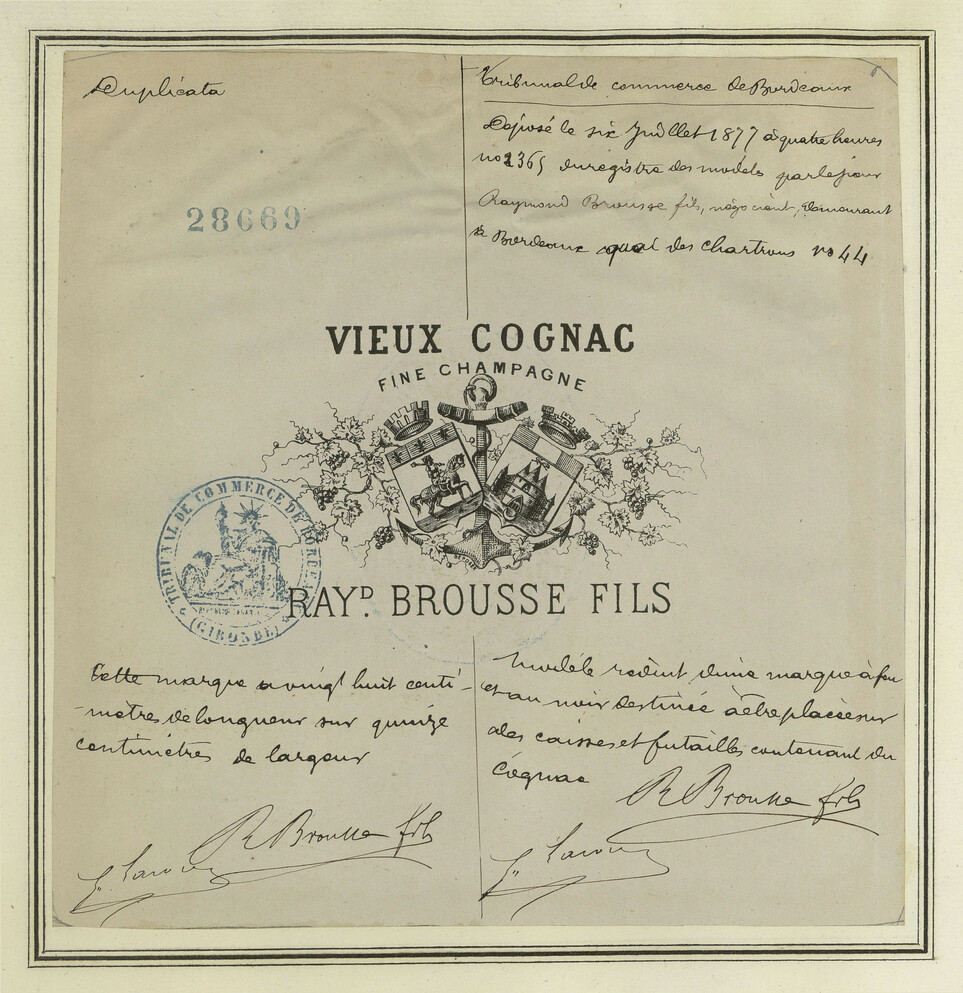 Duplicata
Tribunal de commerce de Bordeaux
Déposé le six Juillet 1877 à quatre heures
no 2365 du registre des modèles par le sieur
Raymond Brousse fils, négociant, demeurant
à Bordeaux quai des Chartrons no 44
28669
VIEUX COGNAC
FINE CHAMPAGNE
TRIBUNAL DE COMMERCE DE BORDEAUX
(GIRONDE)
RAYD. BROUSSE FILS
Cette marque a vingt huit centi-
-mètres de longueur sur quinze
centimètres de largeur
R Brousse fils
Modèle réduit d'une marque à feu
et au noir destinée à être placée sur
des caisses et futailles contenant du
Cognac
R Brousse fils